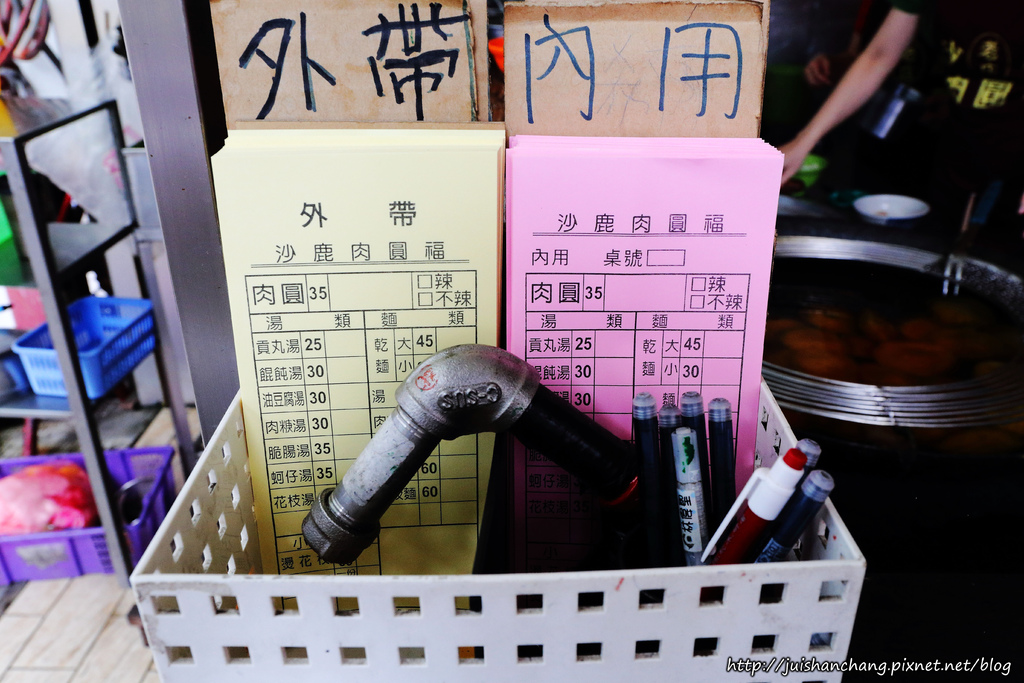 外帶
內用
外 帶
沙鹿肉圓福
肉圓 35 □辣
□不辣
湯 類 麵 類
貢丸湯 25 乾 大 45
餛飩湯 30 麵 小 30
油豆腐湯 30 湯
肉𥻵湯 30
脆腸湯 35
蚵仔湯 35 60
花枝湯 麵 60
小
燙花枝
沙鹿肉圓福
內用 桌號
肉圓 35 □辣
□不辣
湯 類 麵 類
貢丸湯 25 乾 大 45
餛飩湯 30 麵 小 30
油豆腐湯 30
SUS
肉圓
http://juishanchang.pixnet.net/blog